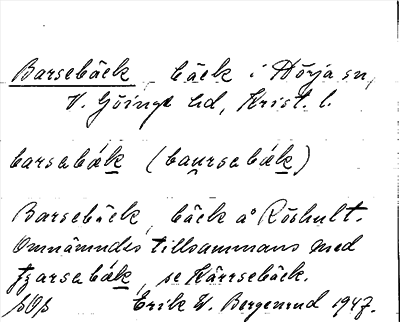 Barsebäck, bäck i Hörja sn,
V. Göinge hd, Krist. l.
barsabák (baursabák)
Barsebäck, bäck å Röshult.
Omnämndes tillsammans med
se Kärrsebäck.
Erik W. Bergenrud 1947.